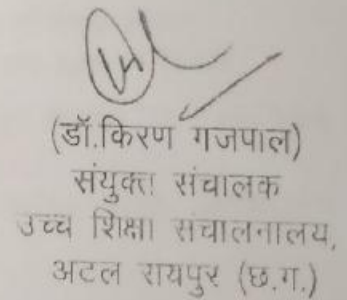 (डॉ.किरण गजपाल)
संयुक्त संचालक
उच्च शिक्षा संचालनालय,
अटल रायपुर (छ.ग.)